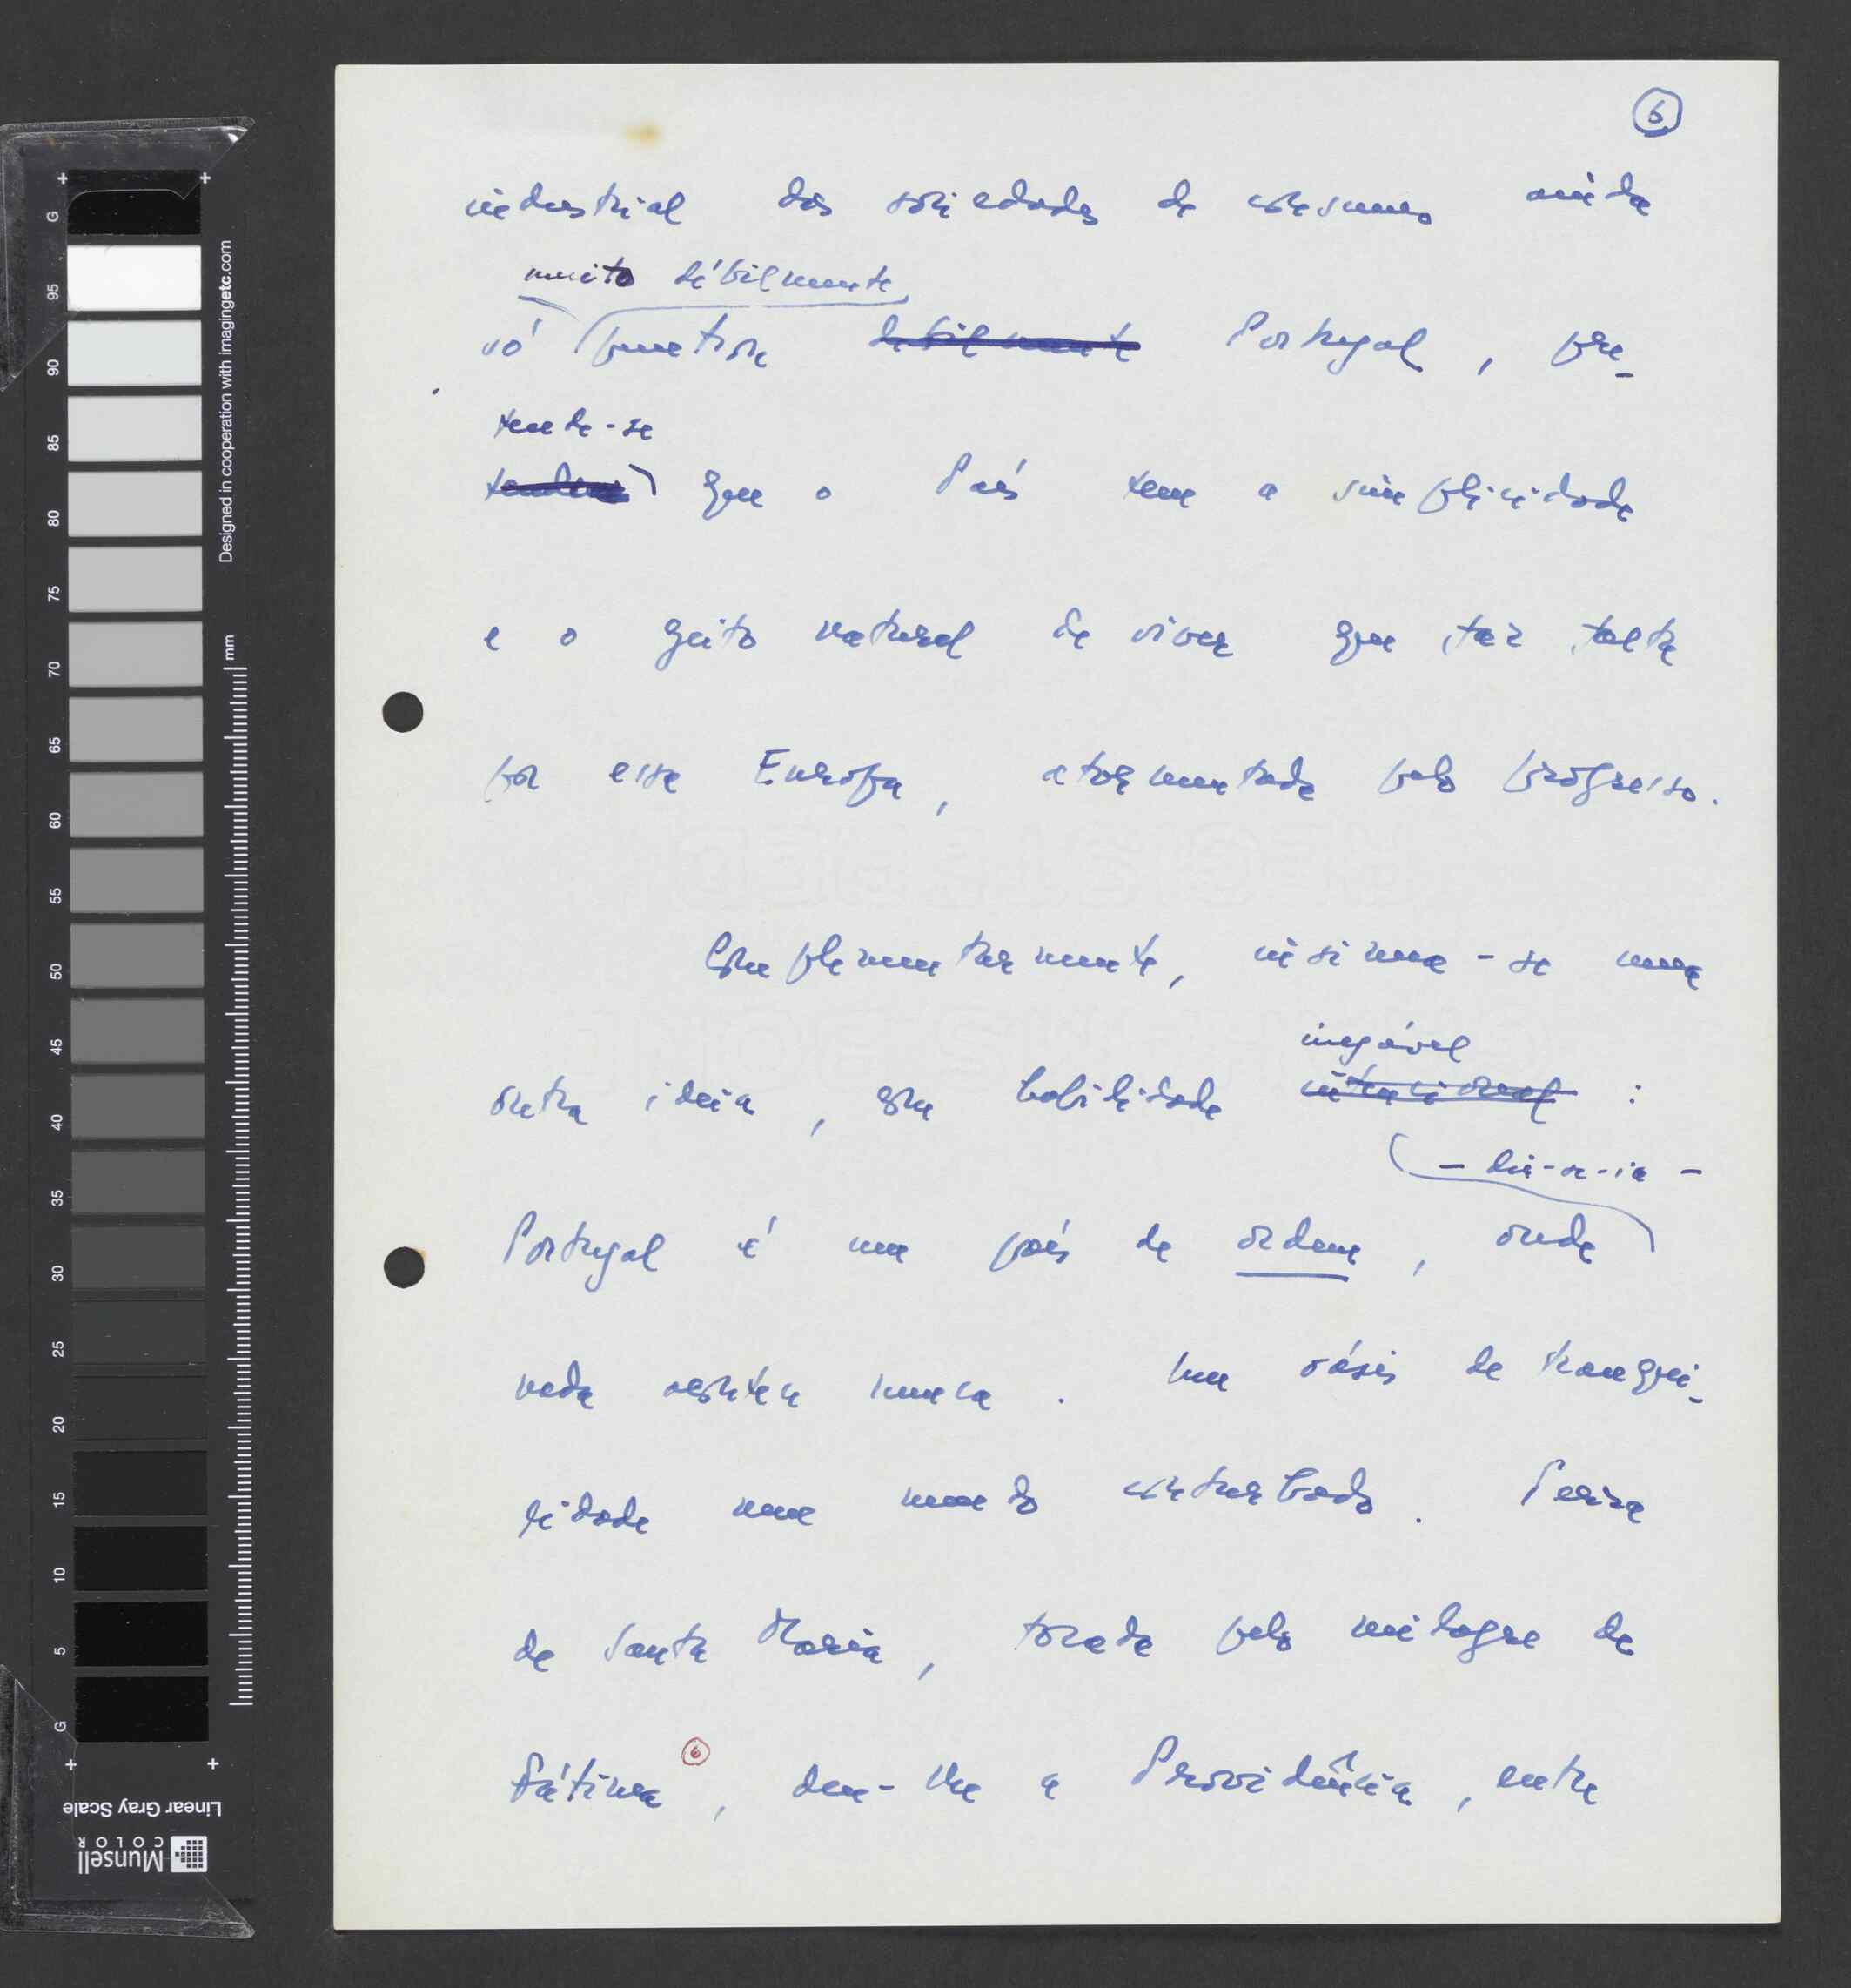 6
industrial das sociedades de consumo ainda
muito débilmente
só penetrou debilmente Portugal, pre-
tende-se
que o País tem a simplicidade
e o geito natural de viver que faz falta
por essa Europa, atormentada pelo progresso.
Complementarmente, insinua-se uma
inegável
outra ideia, com habilidade intencional :
– dir-se-ia –
Portugal é um país de ordem, onde
nada acontece nunca. Um oásis de tranqui-
lidade num mundo conturbado. Terra
de Santa Maria, tocada pelo milagre de
Fátima 6, deu-lhe a Providência, entre
G
95
90
85
80
75
70
65
60
55
50
45
40
35
30
25
20
15
10
5
G
mm
Designed in cooperation with imagingetc.com
Linear Gray Scale
Munsell
COLOR